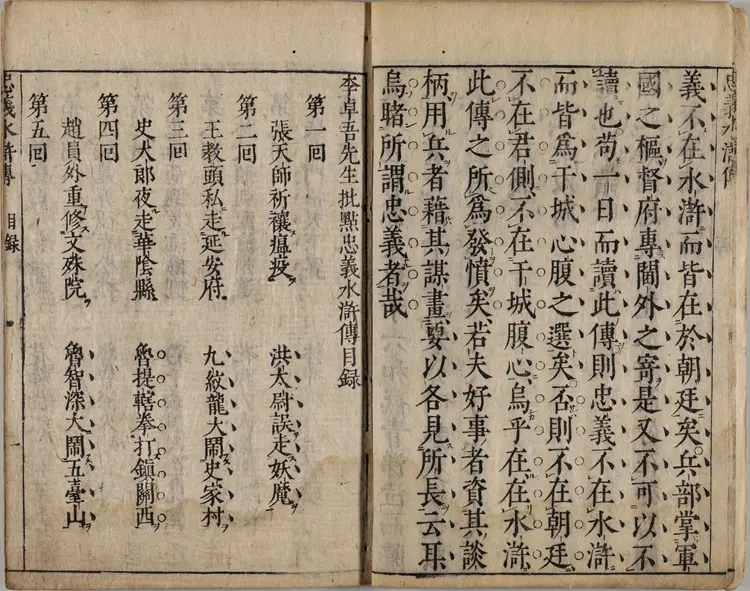 忠義水滸傳
義不在水滸而皆在於朝廷矣兵部掌軍
國之樞督府專閫外之寄是又不可以不
讀也苟一日而讀此傳則忠義不在水滸
而皆爲干城心腹之選矣否則不在朝廷
不在君側不在干城腹心烏乎在在水滸
此傳之所爲發憤矣若夫好事者資其談
柄用兵者藉其謀畫要以各見所長云耳
烏睹所謂忠義者哉
李卓吾先生批點忠義水滸傳目錄
第一回
張天師祈禳瘟疫 洪太尉誤走妖魔
第二回
王教頭私走延安府 九紋龍大鬧史家村
第三回
史大郎夜走華陰縣 魯提轄拳打鎮關西
第四回
趙員外重修文殊院 魯智深大鬧五臺山
第五回
忠義水滸傳 目錄 一